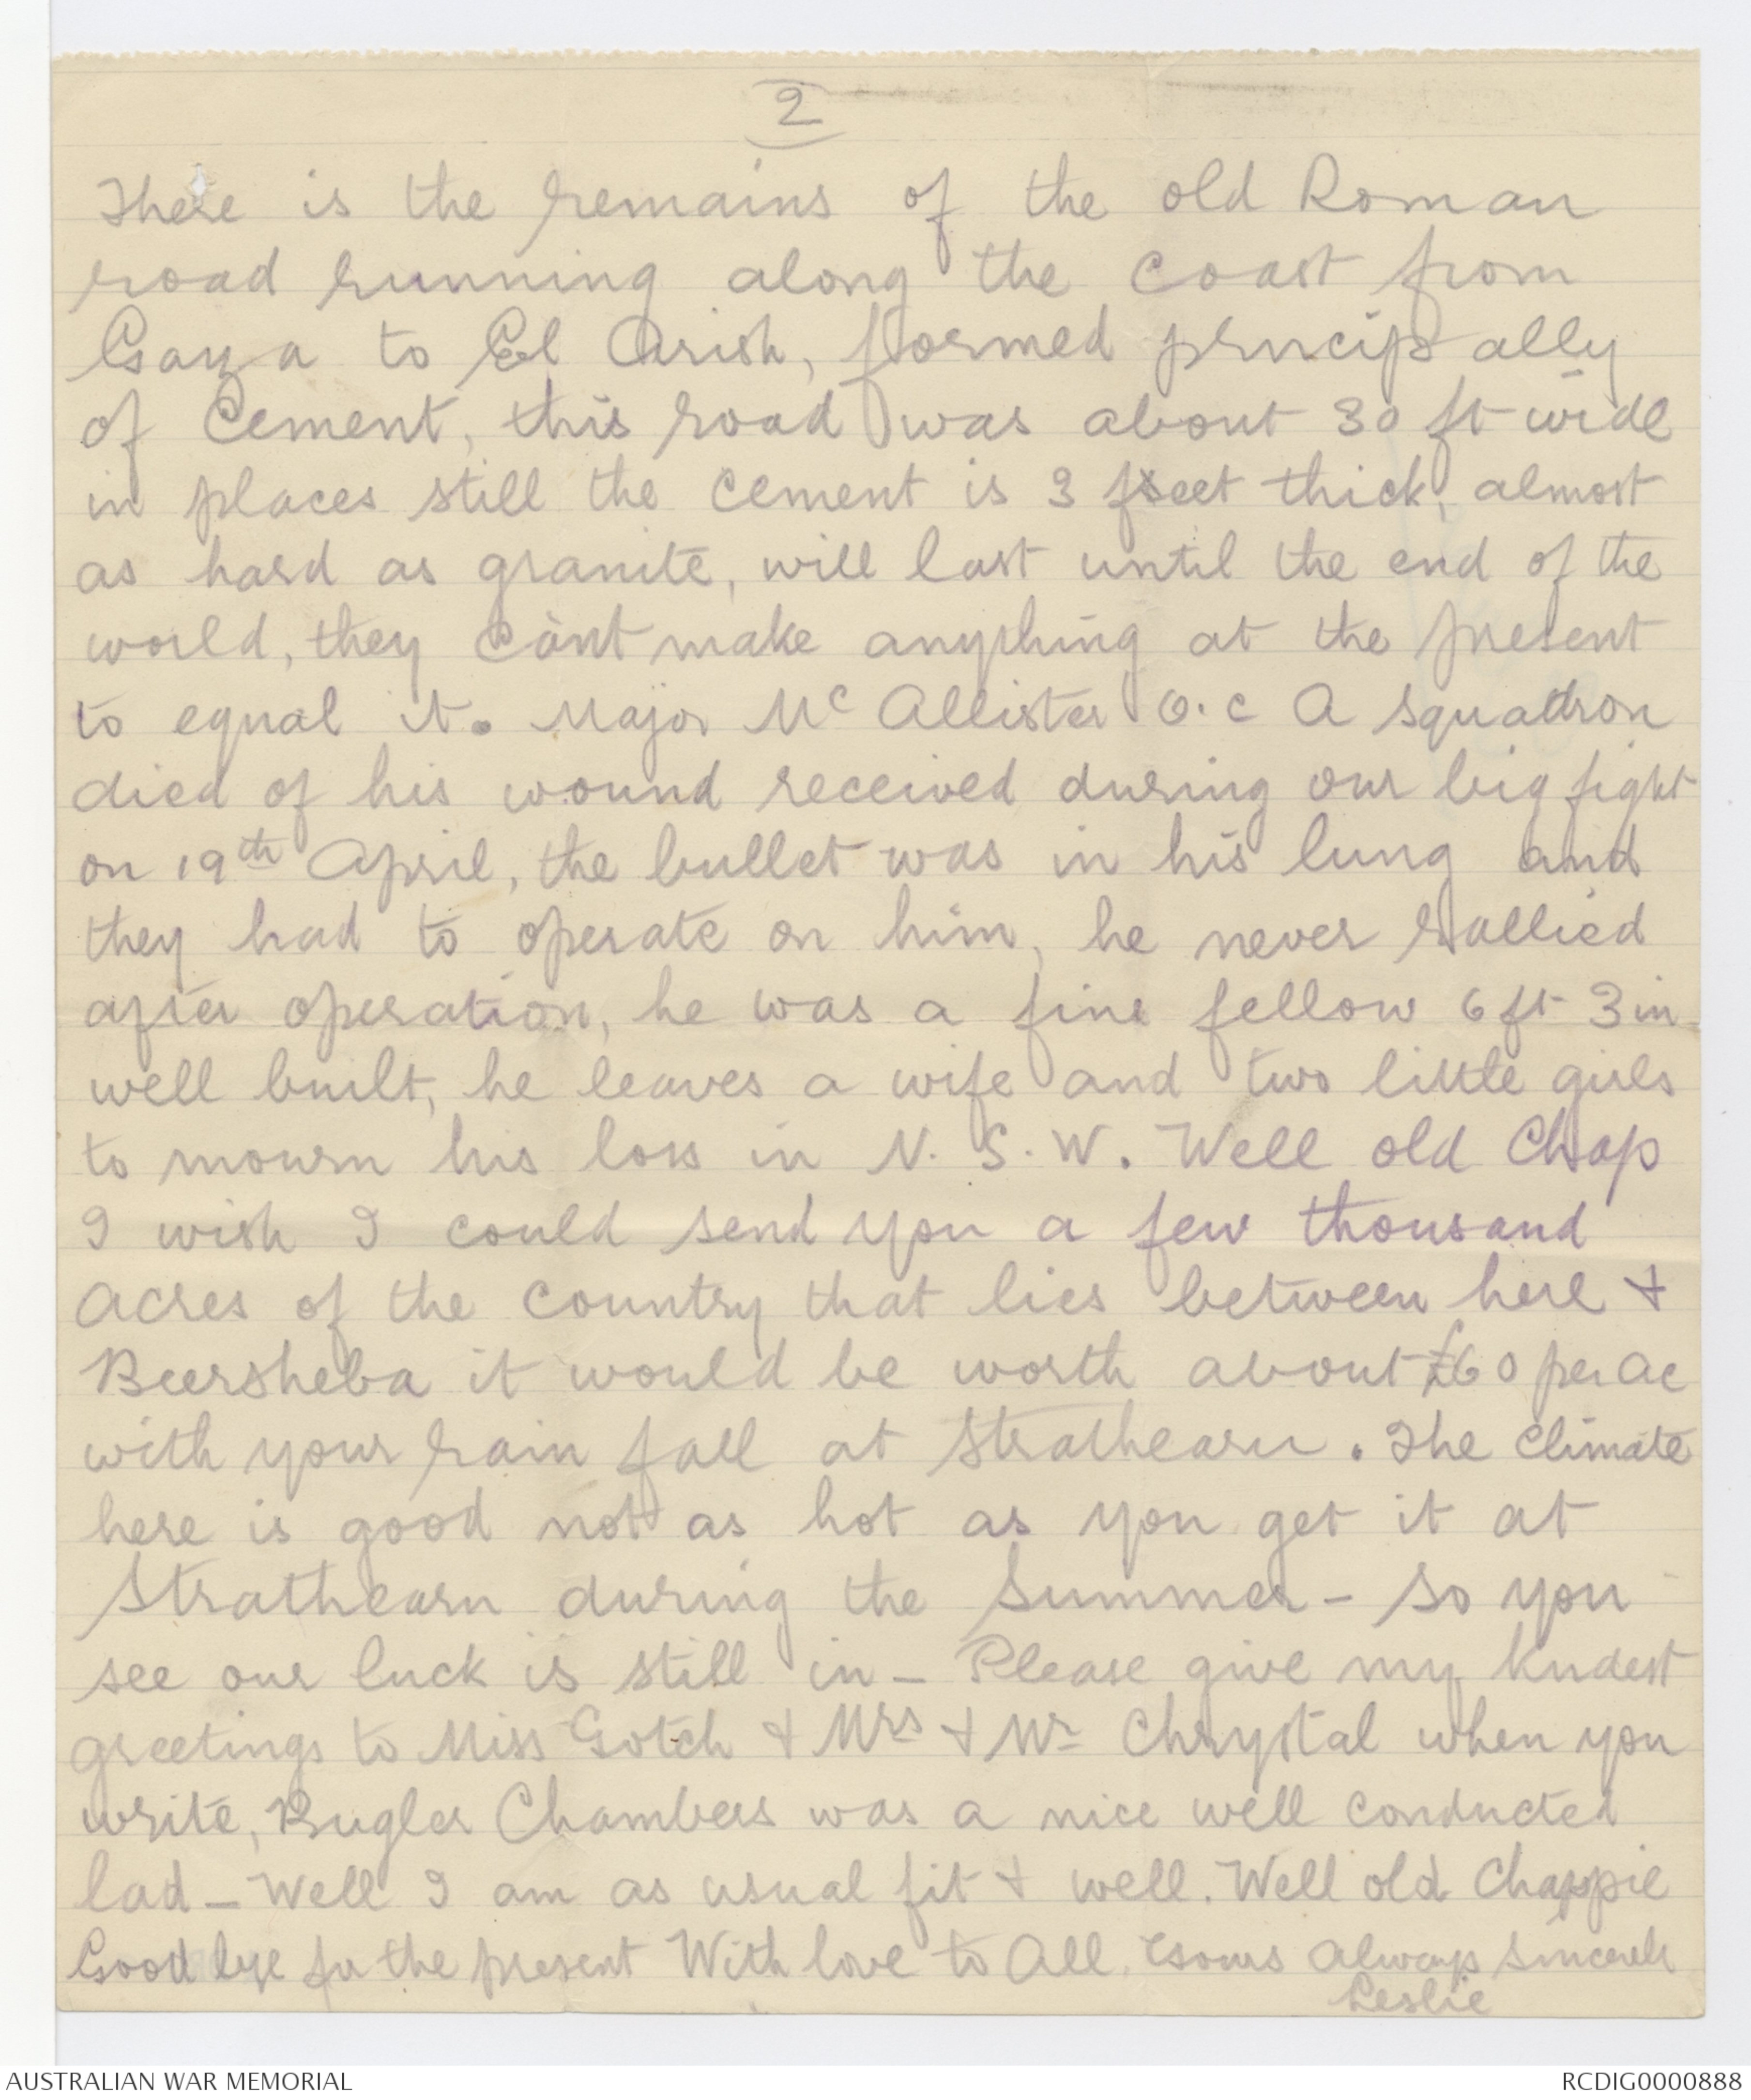 2
There is the remains of the old Roman
road running along the coast from
Gaza to El Arish, formed prncipally
of Cement, this road was about 30 ft wide
in places still the cement is 3 feet thick, almost
as hard as granite, will last until the end of the
world, they can't make anything at the present
to equal it. Major McAllister O.C A squadron
died of his wound received during our big fight
on 19th April, the bullet was in his lung and
they had to operate on him, he never rallied
after operation, he was a fine fellow 6 ft 3 in
well built, he leaves a wife and two little girls
to mourn his loss in N.S.W. Well old Chap
I wish I could send you a few thousand
acres of the country that lies between here &
Beersheba it would be worth about £60 per ac
with your rain fall at Strathearn. The climate
here is good not as hot as you get it at
Strathearn during the Summer - so you
see our luck is still in - Please give my kindest
greetings to Miss Gotch & Mrs & Mr Chrystal when you
write, Bugler Chambers was a nice well conducted
lad - Well I am as usual fit & well. Well old Chappie
Good bye for the present With love to All. Yours Always Sincerely
Leslie
AUSTRALIAN WAR MEMORIAL
RCDIG0000888